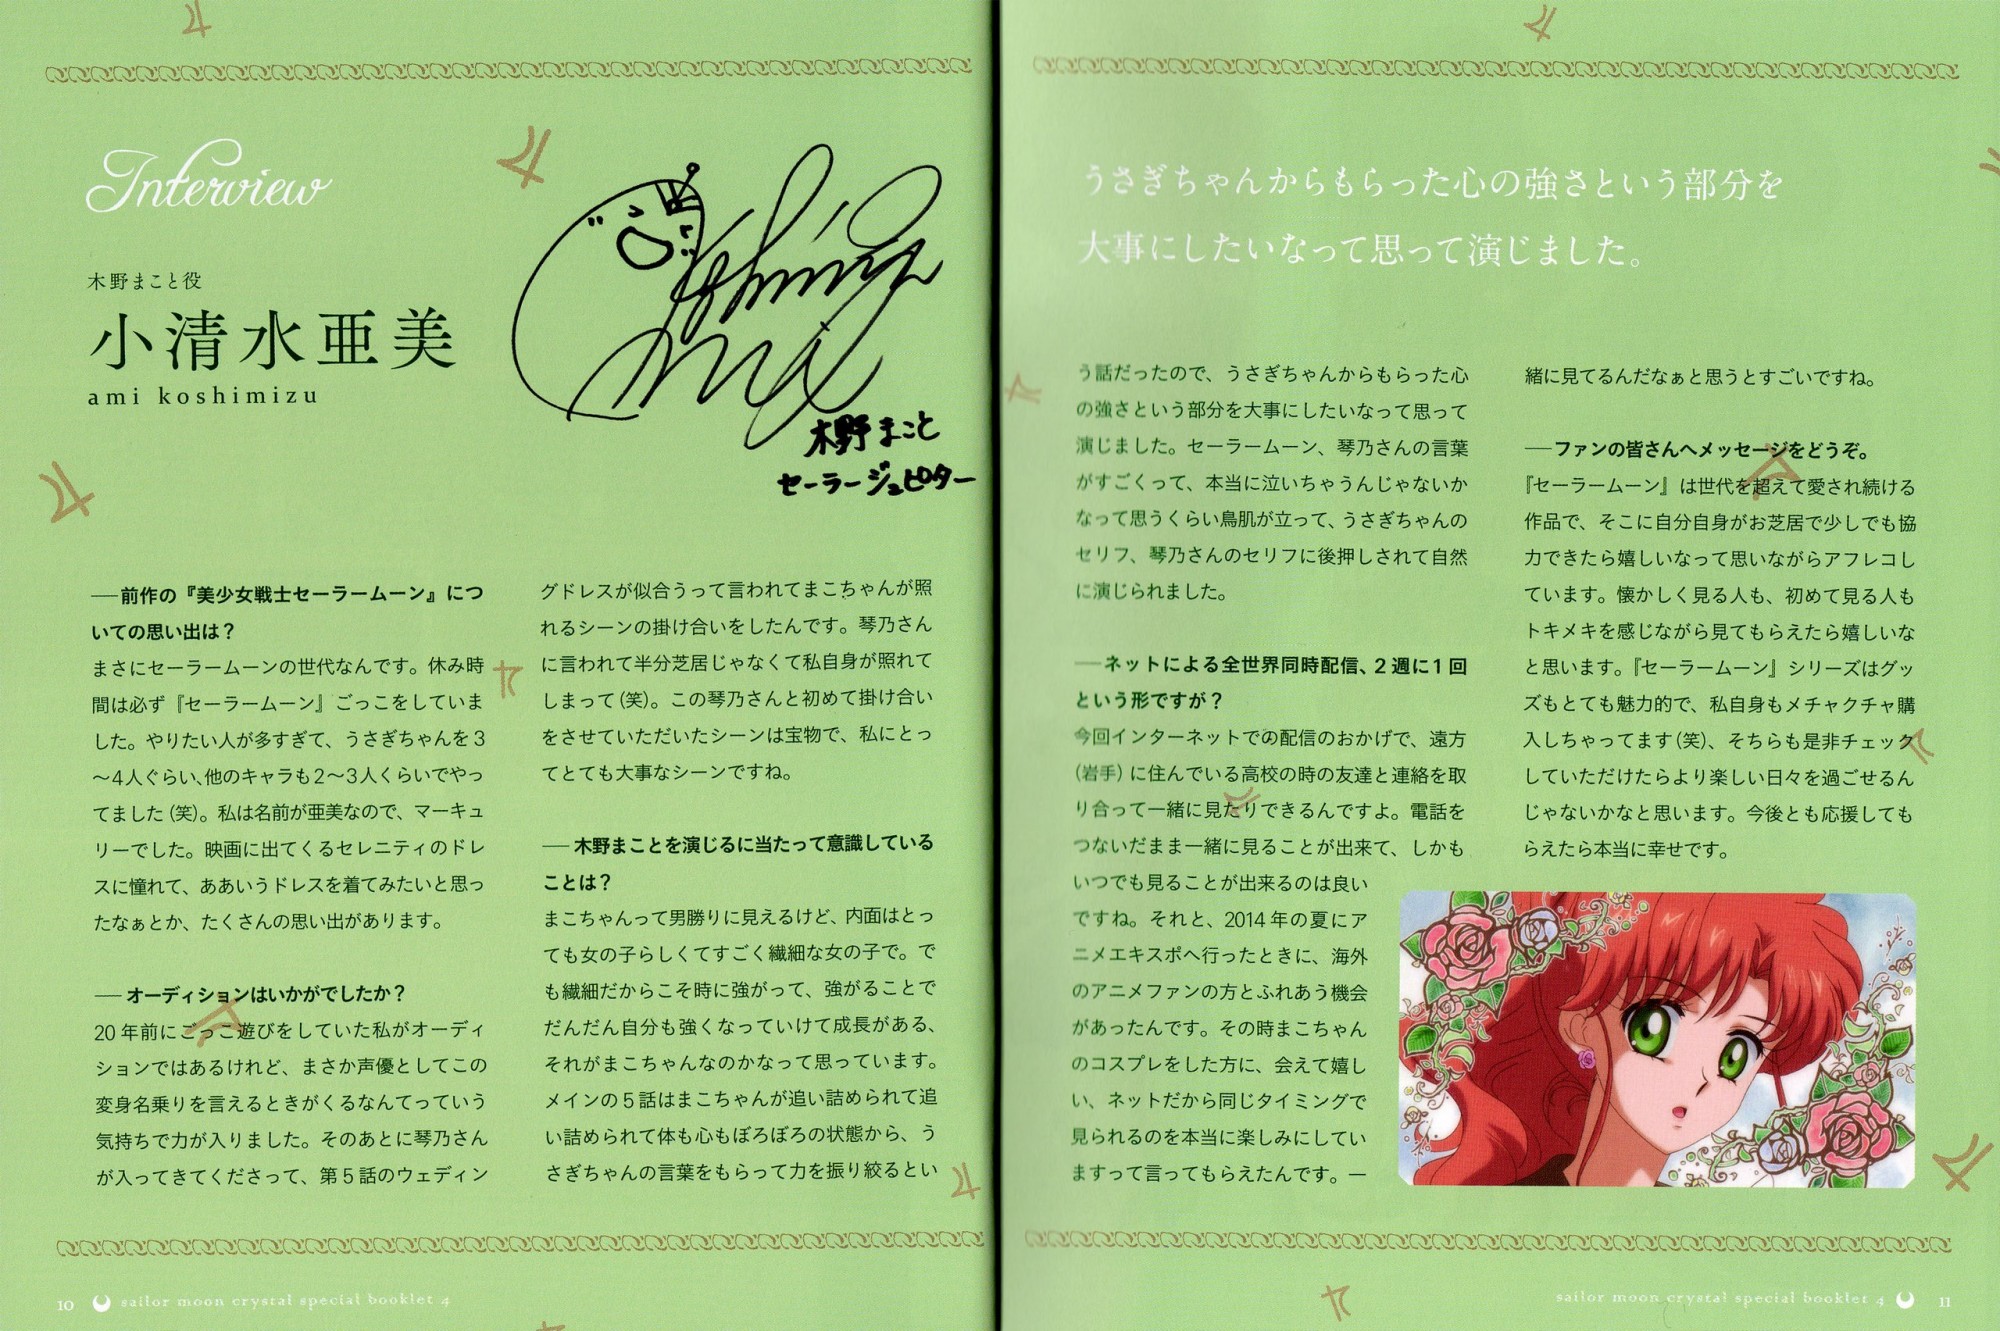 Interview
木野まこと役
小清水亜美
ami koshimizu
木野まこと
セーラージュピター
──前作の『美少女戦士セーラームーン』につ
いての思い出は？
まさにセーラームーンの世代なんです。休み時
間は必ず『セーラームーン』ごっこをしていま
した。やりたい人が多すぎて、うさぎちゃんを3
〜4人ぐらい、他のキャラも2〜3人くらいでやっ
てました（笑）。私は名前が亜美なので、マーキュ
リーでした。映画に出てくるセレニティのドレ
スに憧れて、ああいうドレスを着てみたいと思っ
たなぁとか、たくさんの思い出があります。
──オーディションはいかがでしたか？
20年前にごっこ遊びをしていた私がオーディ
ションではあるけれど、まさか声優としてこの
変身名乗りを言えるときがくるなんてっていう
気持ちで力が入りました。そのあとに琴乃さん
が入ってきてくださって、第5話のウェディン
グドレスが似合うって言われてまこちゃんが照
れるシーンの掛け合いをしたんです。琴乃さん
に言われて半分芝居じゃなくて私自身が照れて
しまって（笑）。この琴乃さんと初めて掛け合い
をさせていただいたシーンは宝物で、私にとっ
てとても大事なシーンですね。
──木野まことを演じるに当たって意識している
ことは？
まこちゃんって男勝りに見えるけど、内面はとっ
ても女の子らしくてすごく繊細な女の子で。で
も繊細だからこそ時に強がって、強がることで
だんだん自分も強くなっていけて成長がある、
それがまこちゃんなのかなって思っています。
メインの5話はまこちゃんが追い詰められて追
い詰められて体も心もぼろぼろの状態から、う
さぎちゃんの言葉をもらって力を振り絞るとい
10 sailor moon crystal special booklet 4
うさぎちゃんからもらった心の強さという部分を
大事にしたいなって思って演じました。
う話だったので、うさぎちゃんからもらった心
の強さという部分を大事にしたいなって思って
演じました。セーラームーン、琴乃さんの言葉
がすごくって、本当に泣いちゃうんじゃないか
なって思うくらい鳥肌が立って、うさぎちゃんの
セリフ、琴乃さんのセリフに後押しされて自然
に演じられました。
──ネットによる全世界同時配信、2週に1回
という形ですが？
今回インターネットでの配信のおかげで、遠方
（岩手）に住んでいる高校の時の友達と連絡を取
り合って一緒に見たりできるんですよ。電話を
つないだまま一緒に見ることが出来て、しかも
いつでも見ることが出来るのは良い
ですね。それと、2014年の夏にア
ニメエキスポへ行ったときに、海外
のアニメファンの方とふれあう機会
があったんです。その時まこちゃん
のコスプレをした方に、会えて嬉し
い、ネットだから同じタイミングで
見られるのを本当に楽しみにしてい
ますって言ってもらえたんです。一
緒に見てるんだなぁと思うとすごいですね。
──ファンの皆さんへメッセージをどうぞ。
『セーラームーン』は世代を超えて愛され続ける
作品で、そこに自分自身がお芝居で少しでも協
力できたら嬉しいなって思いながらアフレコし
ています。懐かしく見る人も、初めて見る人も
トキメキを感じながら見てもらえたら嬉しいな
と思います。『セーラームーン』シリーズはグッ
ズもとても魅力的で、私自身もメチャクチャ購
入しちゃってます（笑）、そちらも是非チェック
していただけたらより楽しい日々を過ごせるん
じゃないかなと思います。今後とも応援しても
らえたら本当に幸せです。
sailor moon crystal special booklet 4 11